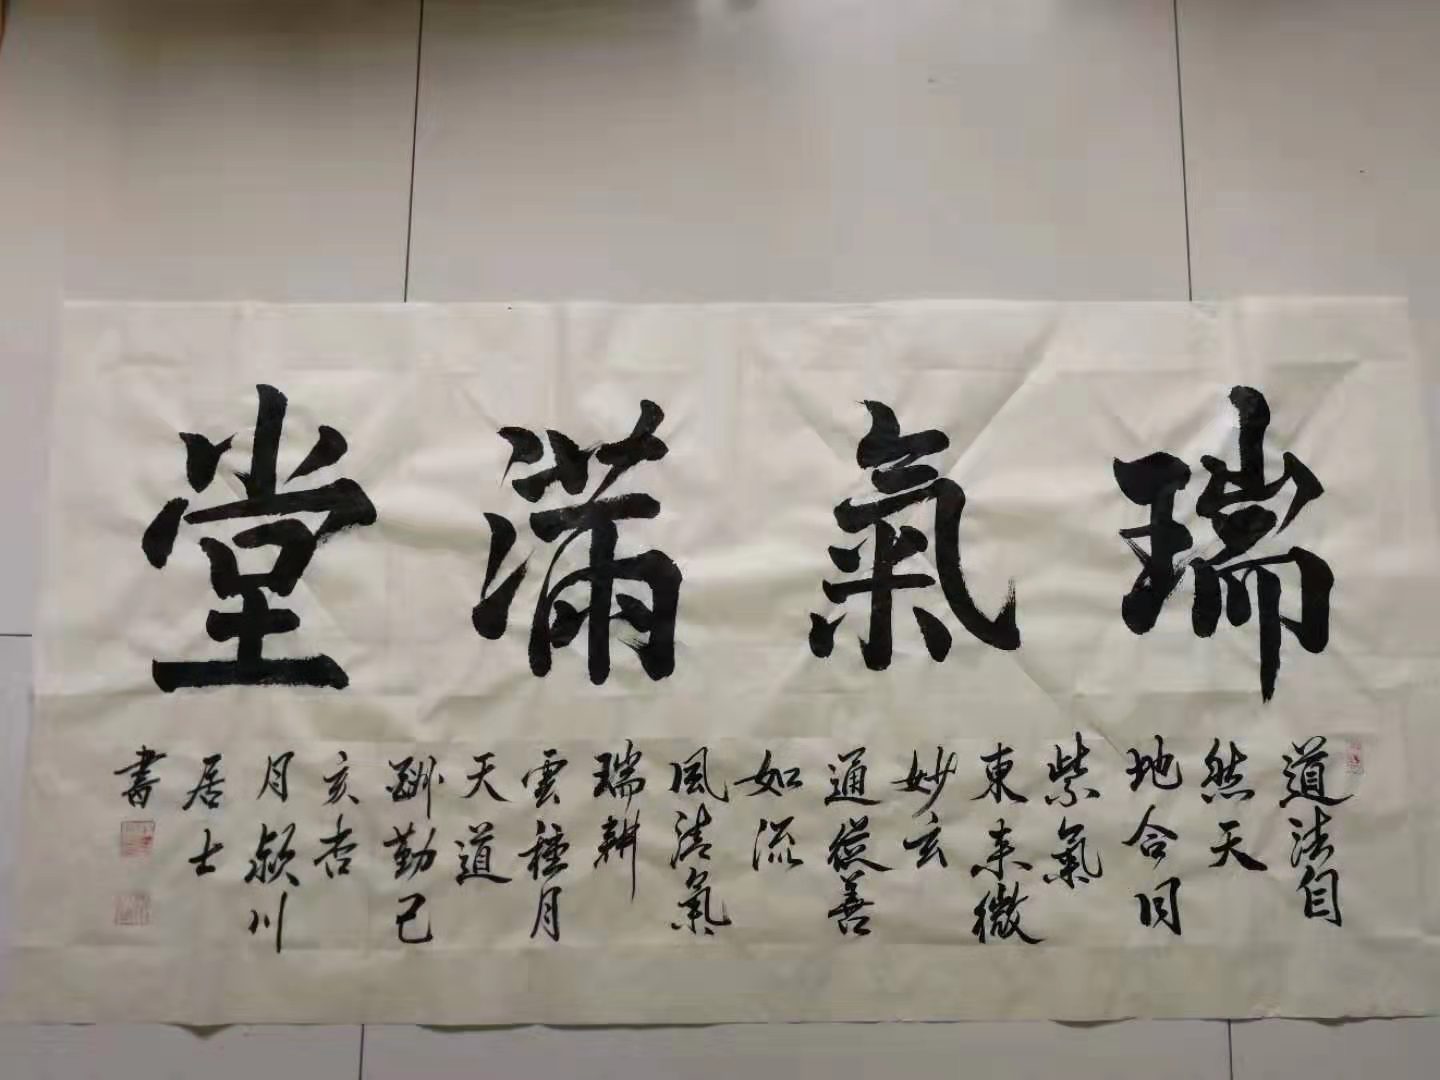 瑞氣滿堂
道法自
然天
地合同
紫氣
東来微
妙玄
通從善
如流
風清氣
瑞耕
雲種月
天道
酬勤己
亥杏
月颍川
居士
書